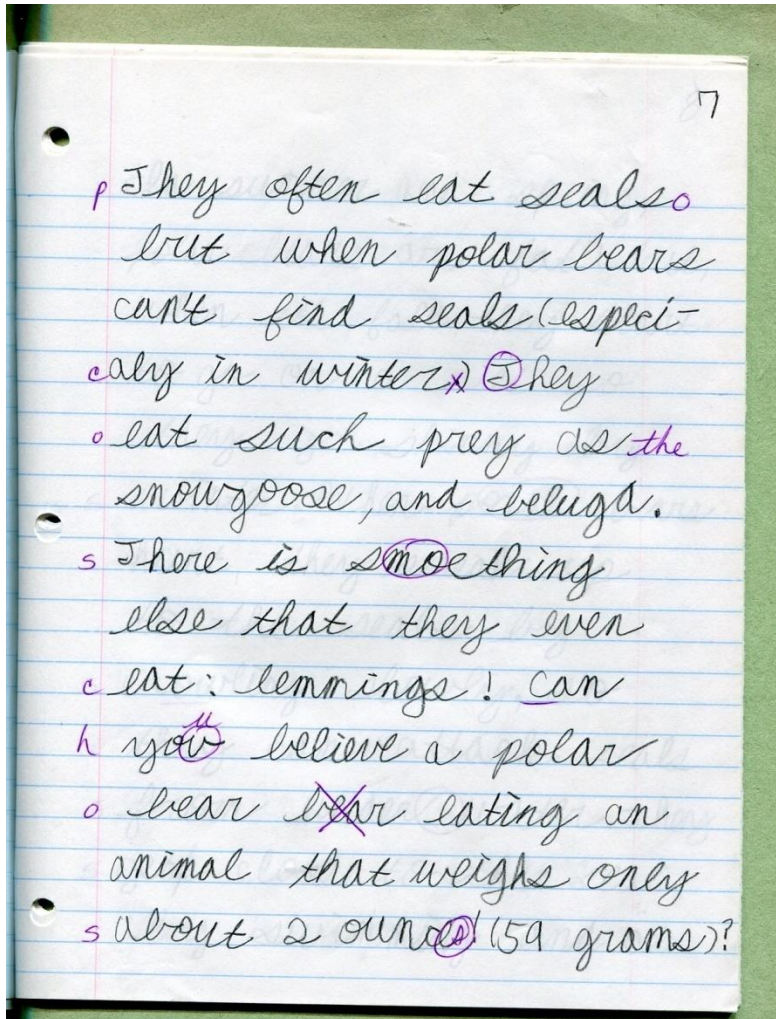 7
p They often eat seals o
but when polar bears
can't find seals (especi-
c aly in winter x) They
o eat such prey as the
snowgoose, and beluga.
s There is smoething
else that they even
c eat: lemmings! Can
u
h yov believe a polar
o bear bear eating an
animal that weighs only
s about 2 ounces! (59 grams)?